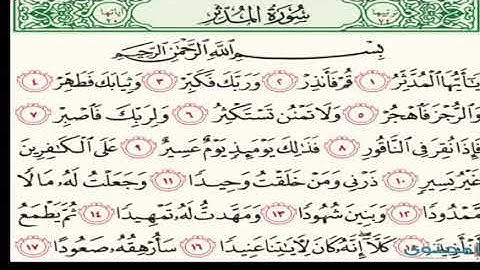 ترتيبها ٧٤ سُورَةُ الْمُدَّثِّرِ آياتها
بِسْمِ اللَّهِ الرَّحْمَٰنِ الرَّحِيمِ
يَا أَيُّهَا الْمُدَّثِّرُ ١ قُمْ فَأَنذِرْ ٢ وَرَبَّكَ فَكَبِّرْ ٣ وَثِيَابَكَ فَطَهِّرْ ٤
وَالرُّجْزَ فَاهْجُرْ ٥ وَلَا تَمْنُن تَسْتَكْثِرُ ٦ وَلِرَبِّكَ فَاصْبِرْ ٧
فَإِذَا نُقِرَ فِي النَّاقُورِ ٨ فَذَٰلِكَ يَوْمَئِذٍ يَوْمٌ عَسِيرٌ ٩ عَلَى الْكَافِرِينَ
غَيْرُ يَسِيرٍ ١٠ ذَرْنِي وَمَنْ خَلَقْتُ وَحِيدًا ١١ وَجَعَلْتُ لَهُ مَالًا
مَّمْدُودًا ١٢ وَبَنِينَ شُهُودًا ١٣ وَمَهَّدتُّ لَهُ تَمْهِيدًا ١٤ ثُمَّ يَطْمَعُ
أَنْ أَزِيدَ ١٥ كَلَّا إِنَّهُ كَانَ لِآيَاتِنَا عَنِيدًا ١٦ سَأُرْهِقُهُ صَعُودًا ١٧